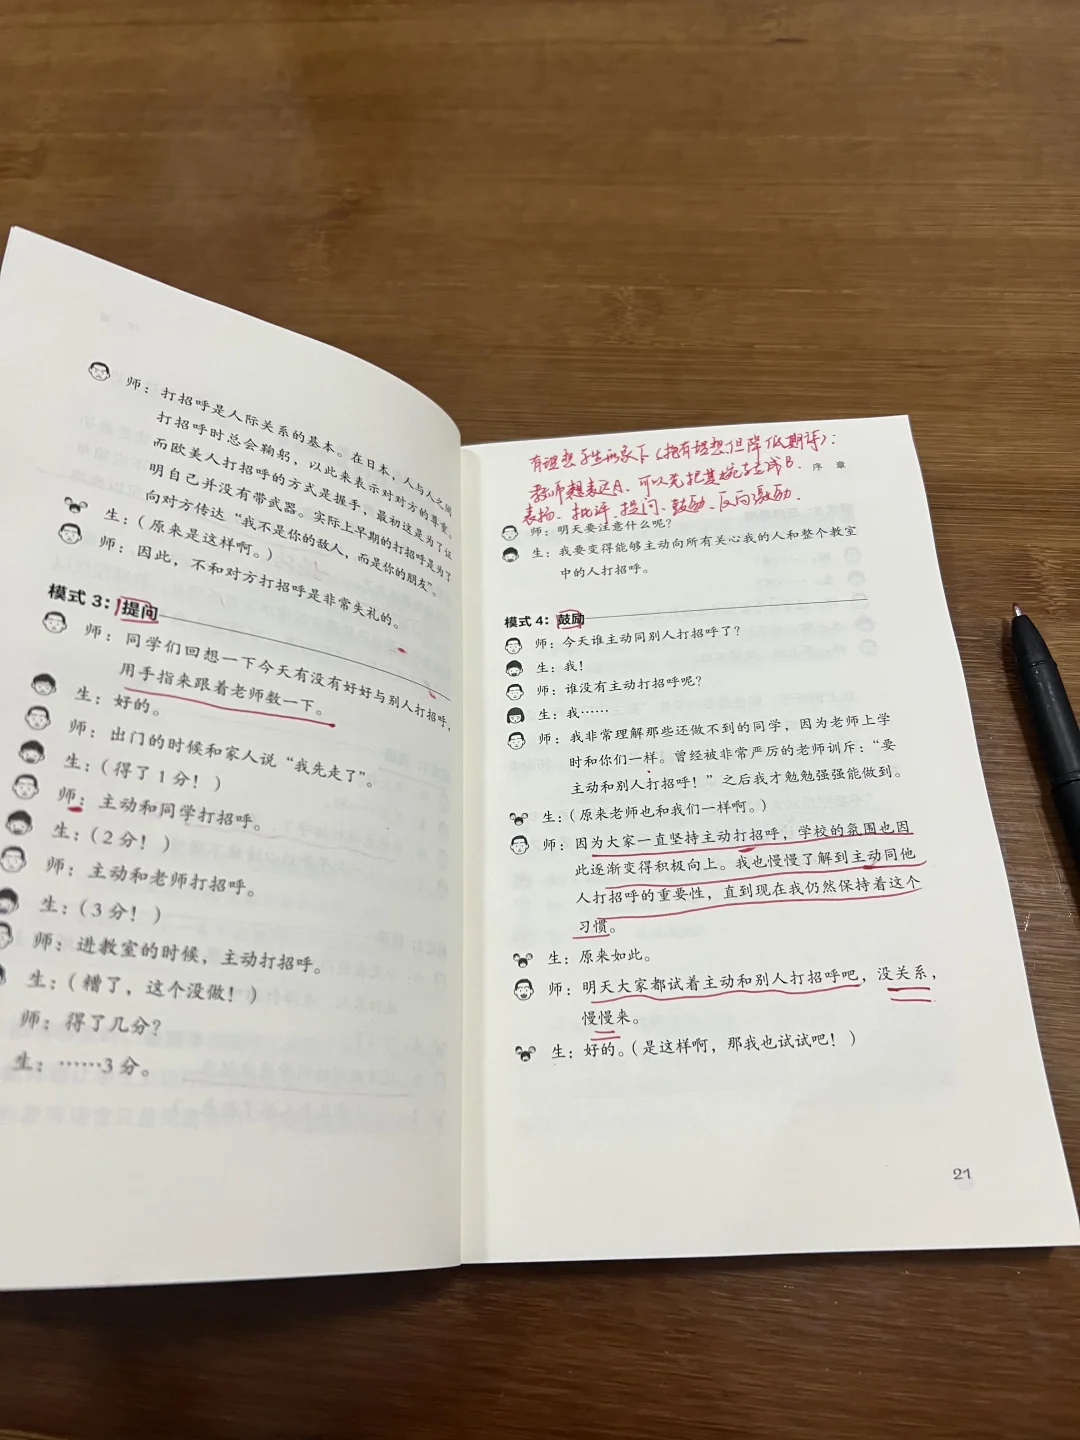 师：打招呼是人际关系的基本。在日本，人与人之间
打招呼时总会鞠躬，以此来表示对对方的尊重。
而欧美人打招呼的方式是握手，最初这是为了证
明自己并没有带武器。实际上早期的打招呼是为了
向对方传达“我不是你的敌人，而是你的朋友”。
生：（原来是这样啊。）
师：因此，不和对方打招呼是非常失礼的。
模式 3：提问
师：同学们回想一下今天有没有好好与别人打招呼，
用手指来跟着老师数一下。
生：好的。
师：出门的时候和家人说“我先走了”。
生：（得了 1 分！）
师：主动和同学打招呼。
生：（2 分！）
师：主动和老师打招呼。
生：（3 分！）
师：进教室的时候，主动打招呼。
生：（糟了，这个没做！）
师：得了几分？
生：……3 分。
有理想学生形象下（抱有理想但降低期待）：
教师想表达A、可以先把其婉转成B、
序 章
表扬、批评、提问、鼓励、反向激励.
师：明天要注意什么呢？
生：我要变得能够主动向所有关心我的人和整个教室
中的人打招呼。
模式 4：鼓励
师：今天谁主动同别人打招呼了？
生：我！
师：谁没有主动打招呼呢？
生：我……
师：我非常理解那些还做不到的同学，因为老师上学
时和你们一样。曾经被非常严厉的老师训斥：“要
主动和别人打招呼！”之后我才勉勉强强能做到。
生：（原来老师也和我们一样啊。）
师：因为大家一直坚持主动打招呼，学校的氛围也因
此逐渐变得积极向上。我也慢慢了解到主动同他
人打招呼的重要性，直到现在我仍然保持着这个
习惯。
生：原来如此。
师：明天大家都试着主动和别人打招呼吧，没关系，
慢慢来。
生：好的。（是这样啊，那我也试试吧！）
21